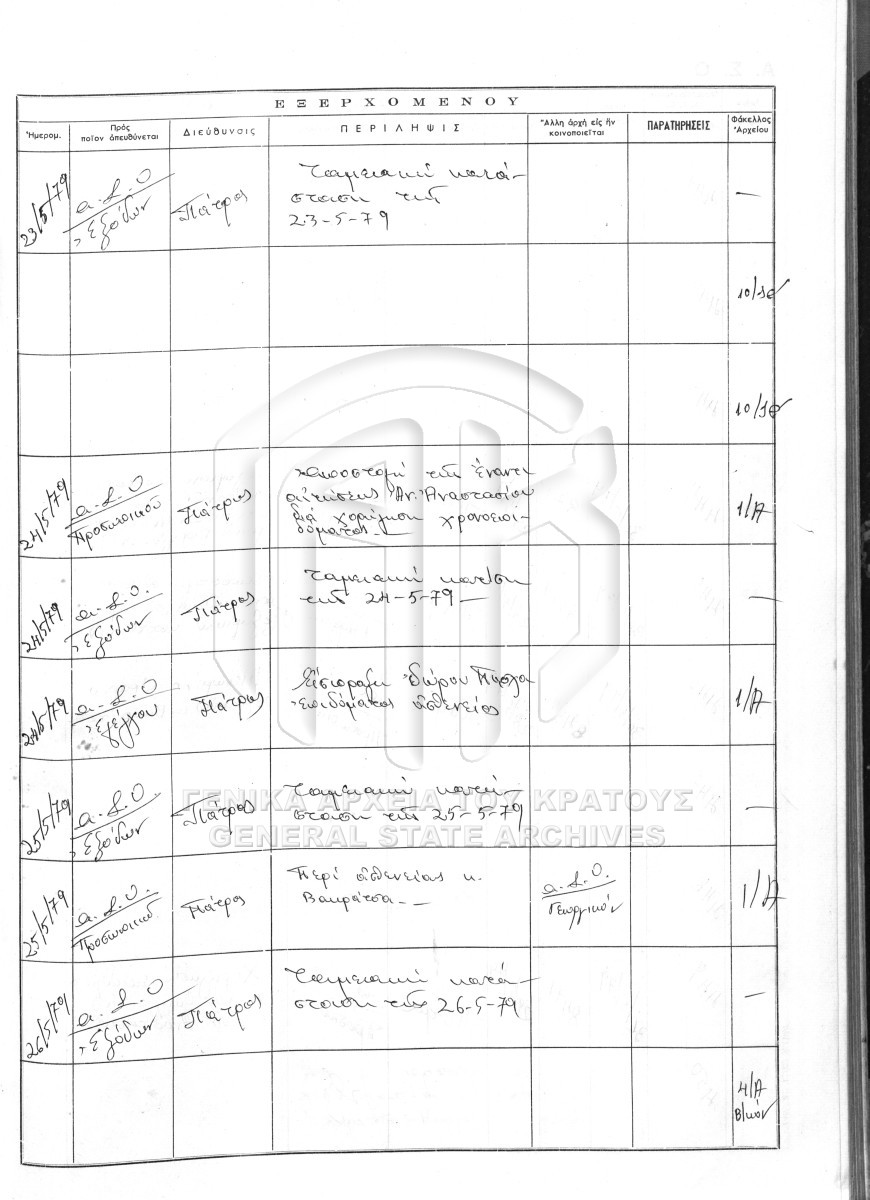 ΕΞΕΡΧΟΜΕΝΟΥ
Ἡμερομ.
Πρὸς ποῖον ἀπευθύνεται
Διεύθυνσις
ΠΕΡΙΛΗΨΙΣ
Ἄλλη ἀρχὴ εἰς ἣν κοινοποιεῖται
ΠΑΡΑΤΗΡΗΣΕΙΣ
Φάκελλος Ἀρχείου
23/5/79
Α.Σ.Ο
Ἐξόδων
Πάτρας
Ταμειακή κατά-
σταση τῆς
23-5-79
—
10/10
10/10
24/5/79
Α.Σ.Ο
Προσωπικοῦ
Πάτρας
τῆς ἔναντι
αἰτήσεως Ἀν. Ἀναστασίου
διά χορήγηση χρονοεπι-
δόματος
1/Α
24/5/79
Α.Σ.Ο.
Ἐξόδων
Πάτρας
Ταμειακή
τῆς 24-5-79 —
—
24/5/79
Α.Σ.Ο
Ἐλέγχου
Πάτρας
Εἴσπραξη δώρου Πάσχα
ἐπιδόματος ἀσθενείας
1/Α
25/5/79
Α.Σ.Ο
Ἐξόδων
Πάτρας
Ταμειακή κατά-
σταση τῆς 25-5-79
—
25/5/79
Α.Σ.Ο.
Προσωπικοῦ
Πάτρας
Περί ἀσθενείας κ.
Α.Σ.Ο.
Γεωργικόν
1/Α
26/5/79
Α.Σ.Ο
Ἐξόδων
Πάτρας
Ταμειακή κατά-
σταση τῆς 26-5-79
—
4/Α
Β/κόν
ΓΕΝΙΚΑ ΑΡΧΕΙΑ ΤΟΥ ΚΡΑΤΟΥΣ
GENERAL STATE ARCHIVES